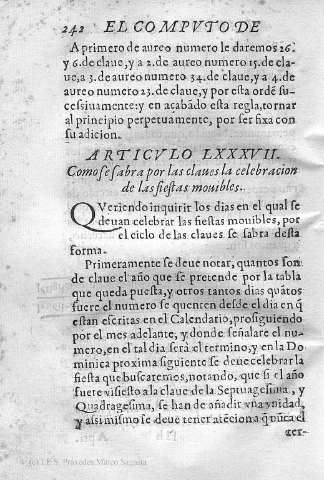 242 EL COMPVTO DE
A primero de aureo numero le daremos 26.
y 6. de claue, y a 2. de aureo numero 15. de cla-
ue, a 3. de aureo numero 34. de claue, y a 4. de
aureo numero 23. de claue, y por esta ordē su-
cessiuamente: y en acabādo esta regla, tornar
al principio perpetuamente, por ser fixa con
su adicion.
ARTICVLO LXXXVII.
Como se sabra por las claues la celebracion
de las fiestas mouibles.
QVeriendo inquirir los dias en el qual se
deuan celebrar las fiestas mouibles, por
el ciclo de las claues se sabra desta
forma.
Primeramente se deue notar, quantos son
de claue el año que se pretende por la tabla
que queda puesta, y otros tantos dias quātos
fuere el numero se quenten desde el dia en q̄
estan escritas en el Calendario, prosiguiendo
por el mes adelante, y donde señalare el nu-
mero, en el tal dia serà el termino, y en la Do
minica proxima siguiente se deue celebrar la
fiesta que buscaremos, notando, que si el año
fuere visiesto a la claue de la Septuagesima, y
Quadragesima, se han de añadir vna vnidad,
y assi mismo se deue tener atēcion q̄ nūca el
ter-
(c) I.E.S. Práxedes Mateo Sagasta